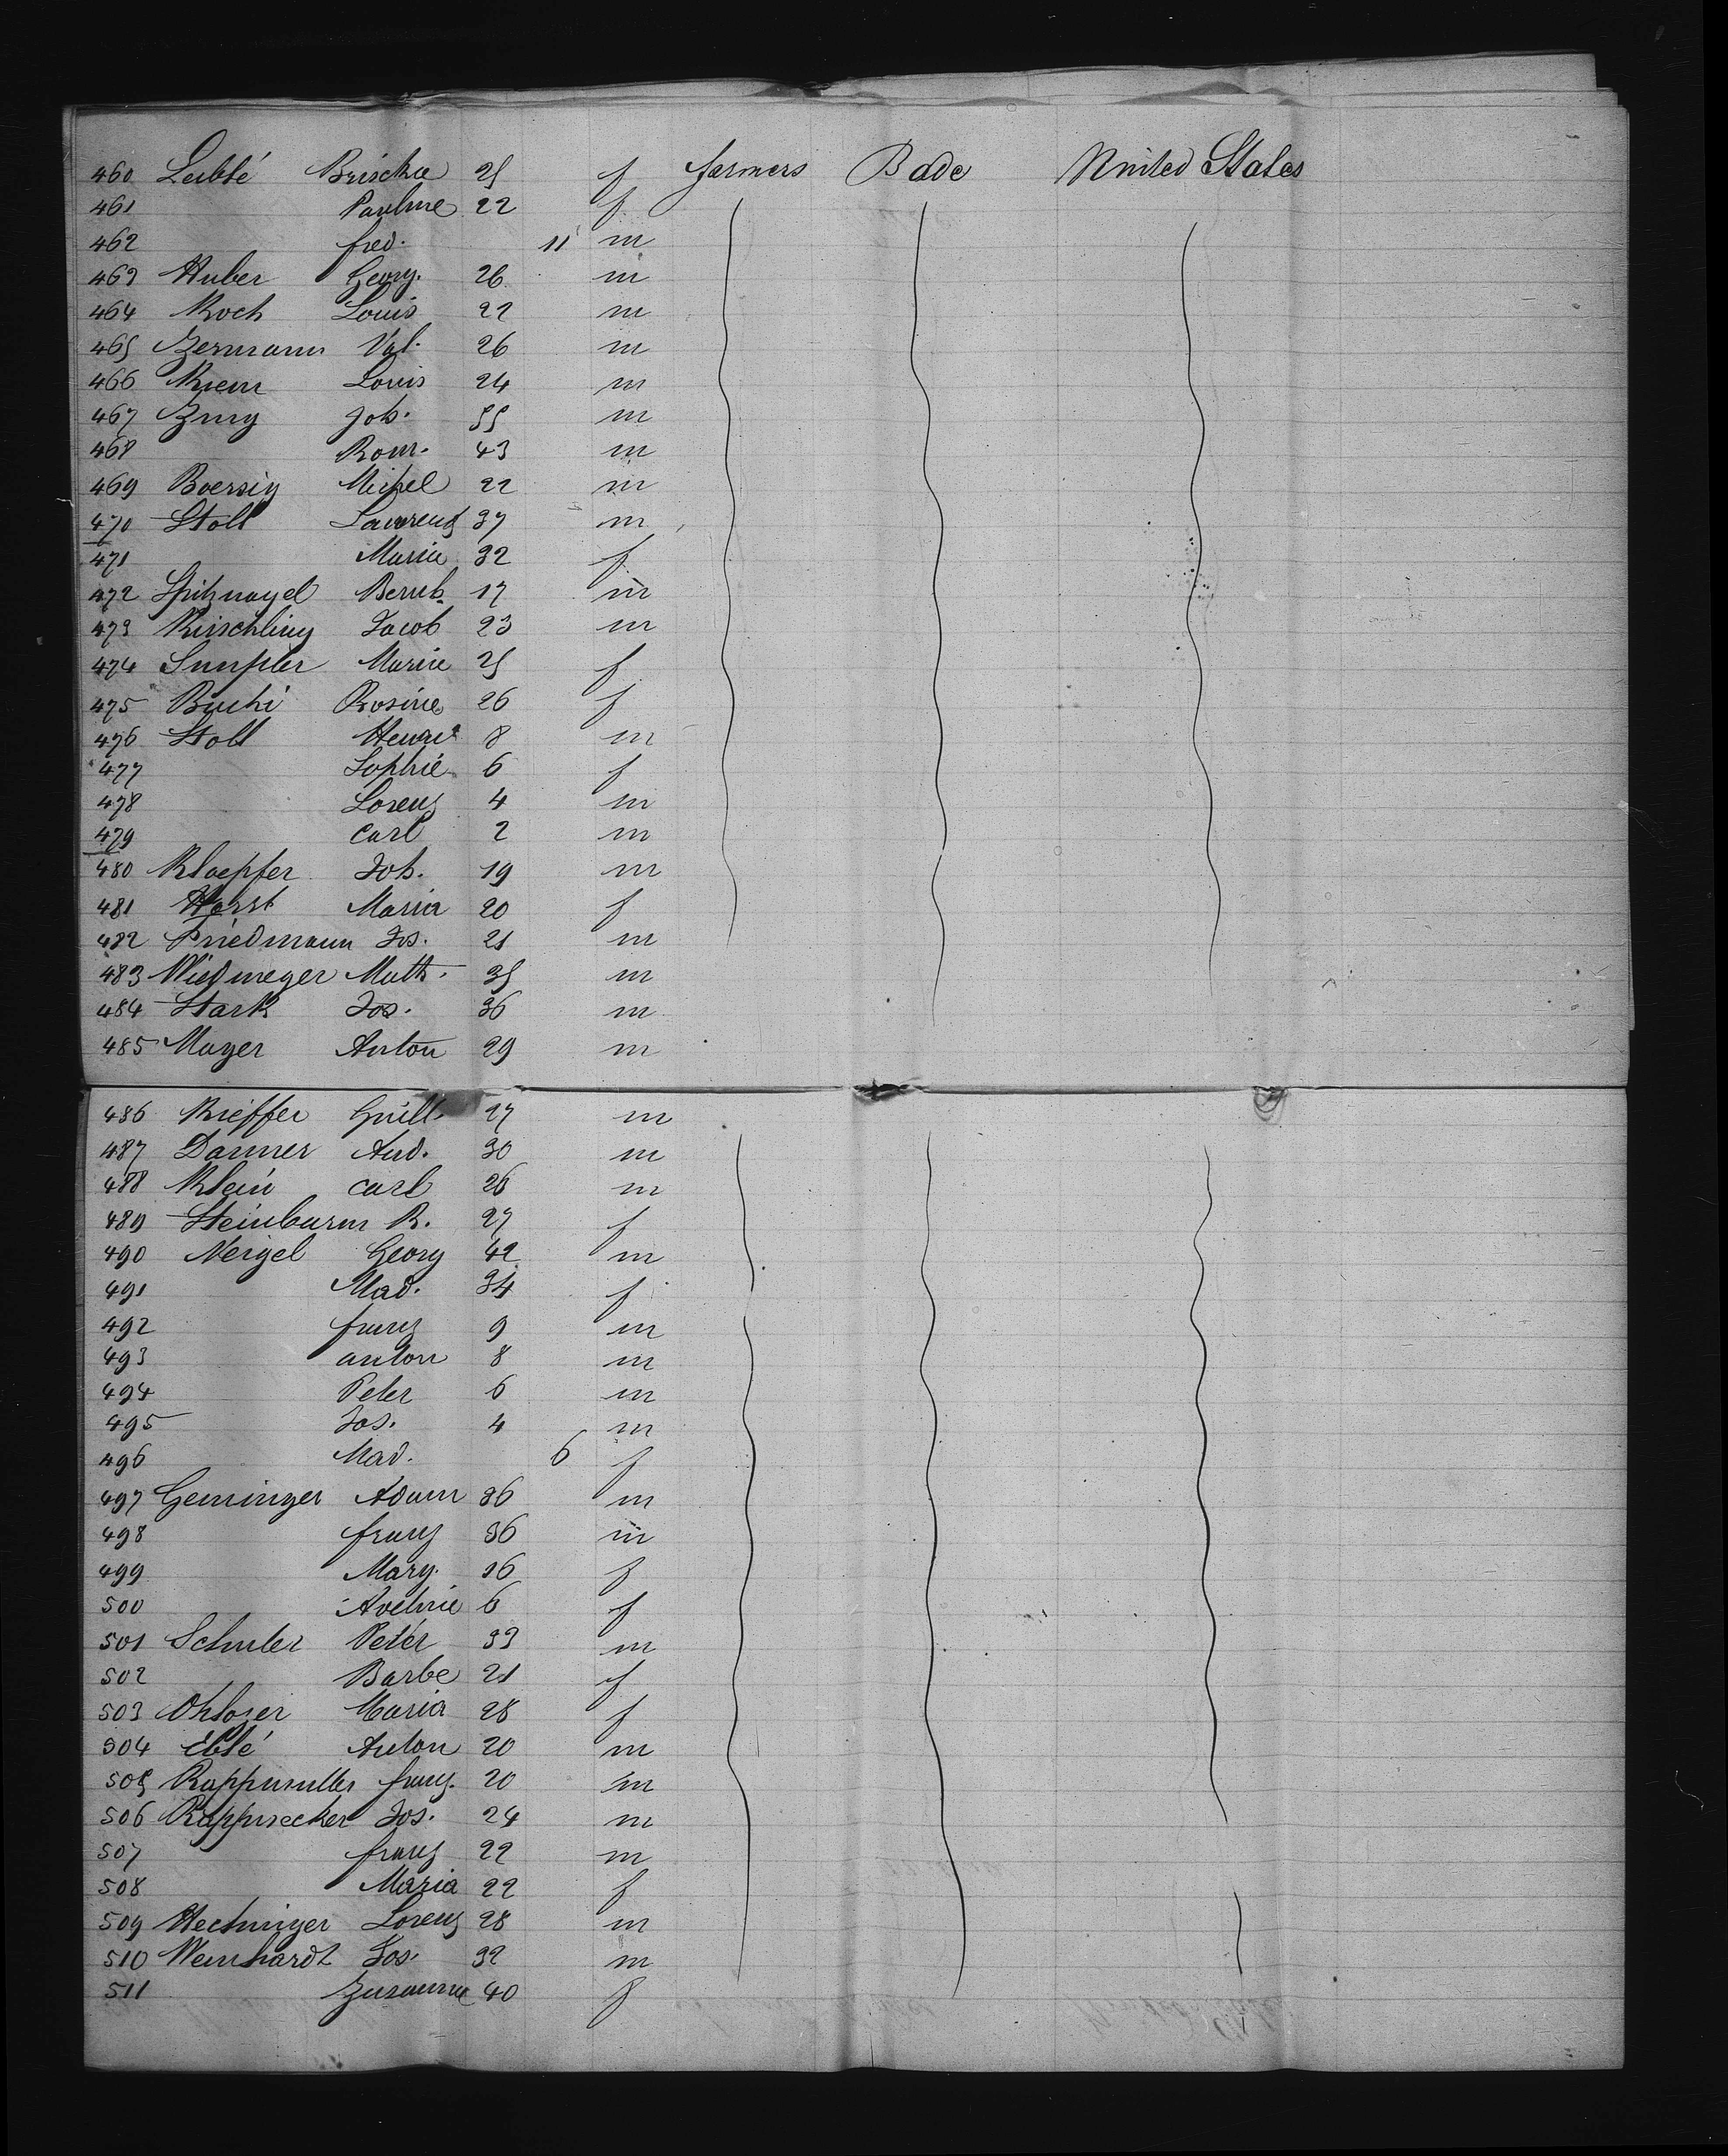 460 Leiblé Brischa 25 f farmers Bade United States
461 Pauline 22 f
462 fred. 11 m
463 Huber Georg. 26 m
464 Koch Louis 22 m
465 Zermann Val. 26 m
466 Kiem Louis 24 m
467 Zing Joh. 55 m
468 Rom. 43 m
469 Boersig Michel 22 m
470 Stoll Laurenz 37 m
471 Maria 32 f
472 Spitznagel Bernh. 17 m
473 Kirschling Jacob 23 m
474 Marie 25 f
475 Buchi Rosine 26 f
476 Stoll Henri 8 m
477 Sophie 6 f
478 Lorenz 4 m
479 Carl 2 m
480 Kloepfer Joh. 19 m
481 Horst Maria 20 f
482 Friedmann Jos. 21 m
483 Wiedmeyer Math. 35 m
484 Stark Jos. 36 m
485 Mayer Anton 29 m
486 Kieffer Guill. 27 m
487 Danner And. 30 m
488 Klein Carl 26 m
489 Steinbarm R. 27 f
490 Neigel Georg 42 m
491 Mad. 34 f
492 franz 9 m
493 anton 8 m
494 Peter 6 m
495 Jos. 4 m
496 Mad. 6 f
497 Geminger Adam 36 m
498 franz 36 m
499 Mary. 26 f
500 6 f
501 Schuler Peter 33 m
502 Barbe 21 f
503 Maria 28 f
504 Eblé Anton 20 m
505 franz. 20 m
506 Rappnecker Jos. 24 m
507 franz 22 m
508 Maria 22 f
509 Hechinger Lorenz 28 m
510 Weinhardt Jos. 32 m
511 Zusanne 40 f